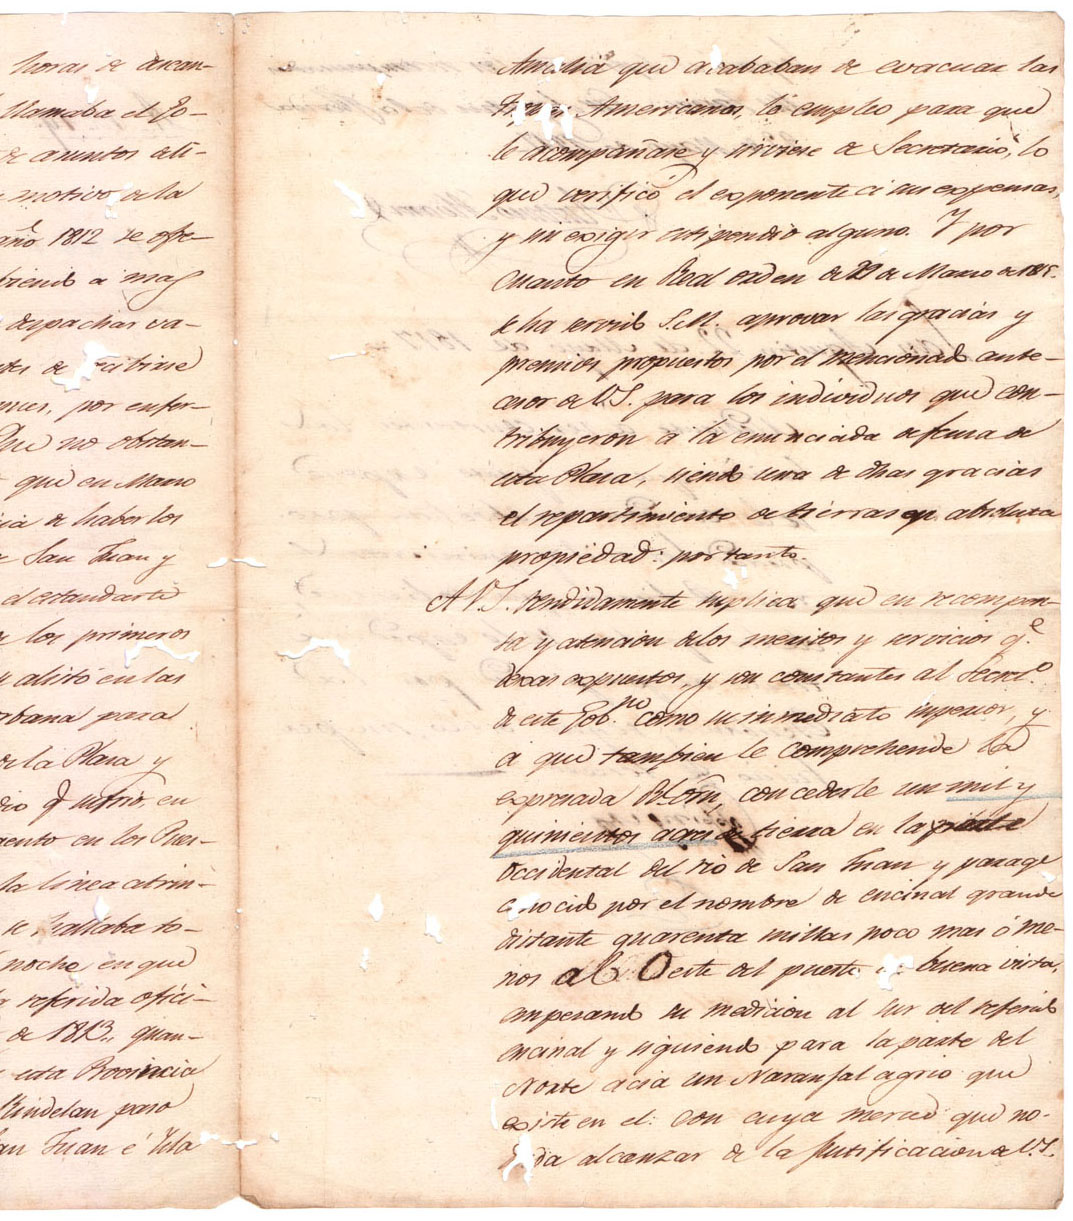 horas de descan-
llamaba el Go-
de asuntos ati-
motivo de la
año 1812 se ofre-
friendo a mas
despachas va-
de recibirse
por enfer-
Que no obstan-
que en Marzo
cia de haber los
San Juan y
el estandarte
de los primeros
alistó en las
Urbana para
de la Plaza y
dio q.e sufrió en
mento en los Puer-
la linea atrin-
se hallaba so-
noche en que
la referida ofici-
de 1813, quan-
esta Provincia
Kindelan paso
San Juan é Ysla
Amalia que acababan de evacuar las
tropas Americanas, lo empleo para que
le acompañase y sirviese de Secretario, lo
que verificó el exponente á sus expensas
y sin exigir estipendio alguno. Y por
cuanto en Real orden de 29 de Marzo de 1815.
se ha servido S.M. aprovar las gracias y
premios propuestos por el mencionado ante-
cesor de V.S. para los individuos que con-
tribuyeron a la enunciada defensa de
esta Plaza, siendo una de dhas gracias
el repartimiento de tierras en absoluta
propiedad: por tanto.
A V.S. rendidamente suplica que en recompen-
sa y atencion de los meritos y servicios q.e
dexas expuestos, y son constantes al Secret.o
de este Gob.no como su inmediato superior, y
a que tambien le comprehende la
expresada R.l Orn, concederle un mil y
quinientos acres de tierra en la parte
occidental del rio de San Juan y parage
conocido por el nombre de encinal grande
distante quarenta millas poco mas ó me-
nos al Oeste del puerto de buena vista,
empezando su medicion al sur del referido
encinal y siguiendo para la parte del
Norte acia un Naranjal agrio que
existe en el: con cuya merced que no-
duda alcanzar de la justificacion de V.S.